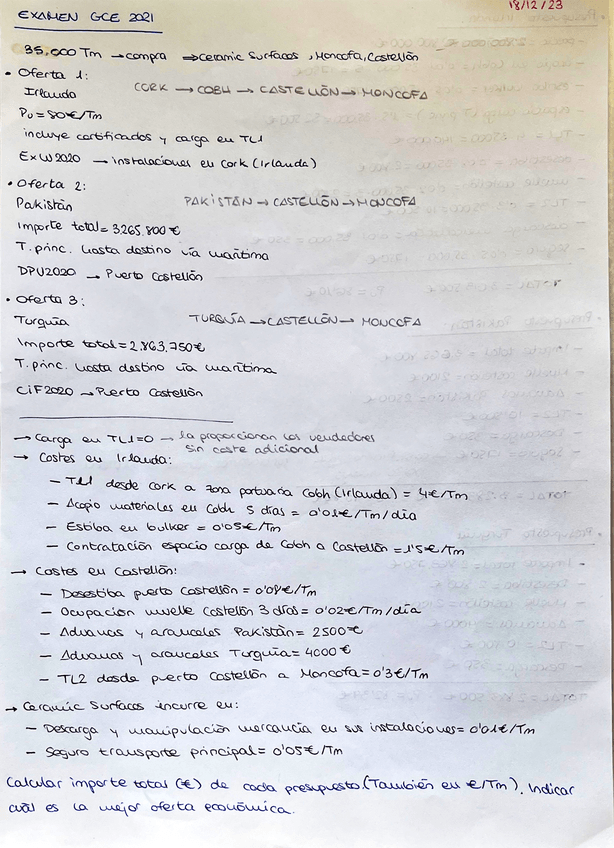 18/12/23
EXAMEN GCE 2021
35.000 Tm → compra → Ceramic Surfaces, Moncofa, Castellón
• Oferta 1:
Irlanda CORK → COBH → CASTELLÓN → MONCOFA
Pu = 80€/Tm
incluye certificados y carga en TL1
EXW2020 → instalaciones en Cork (Irlanda)
• Oferta 2:
Pakistán PAKISTÁN → CASTELLÓN → MONCOFA
Importe total = 3.265.800 €
T. princ. hasta destino vía marítima
DPU2020 → Puerto Castellón
• Oferta 3:
Turquía TURQUÍA → CASTELLÓN → MONCOFA
Importe total = 2.863.750€
T. princ. hasta destino vía marítima
CIF2020 → Puerto Castellón
→ Carga en TL1=0 → la proporcionan los vendedores
sin coste adicional
→ Costes en Irlanda:
– TL1 desde Cork a zona portuaria Cobh (Irlanda) = 4€/Tm
– Acopio materiales en Cobh 5 días = 0'01€/Tm/día
– Estiba en bulker = 0'05€/Tm
– Contratación espacio carga de Cobh a Castellón = 1'5€/Tm
→ Costes en Castellón:
– Desestiba puerto Castellón = 0'08€/Tm
– Ocupación muelle Castellón 3 días = 0'02€/Tm/día
– Aduanas y aranceles Pakistán = 2500€
– Aduanas y aranceles Turquía = 4000€
– TL2 desde puerto Castellón a Moncofa = 0'3€/Tm
→ Ceramic Surfaces incurre en:
– Descarga y manipulación mercancía en sus instalaciones = 0'01€/Tm
– Seguro transporte principal = 0'05€/Tm
Calcular importe total (€) de cada presupuesto (También en €/Tm). Indicar
cuál es la mejor oferta económica.